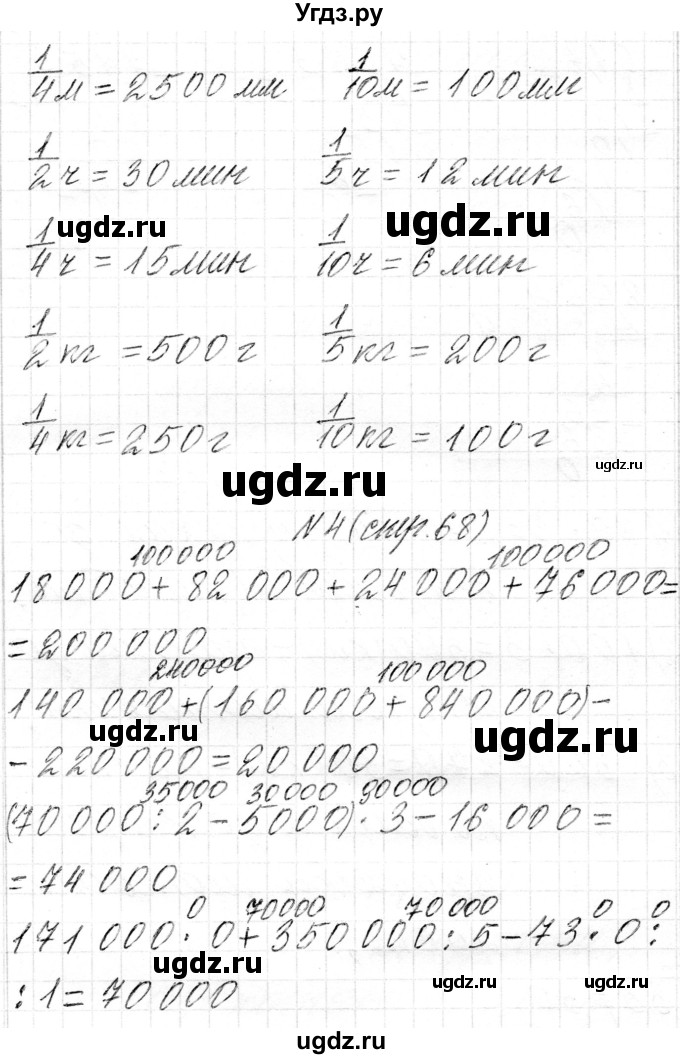 Угдз.ру
1/4 м = 2500 мм 1/10 м = 100 мм
1/2 ч = 30 мин 1/5 ч = 12 мин
ugdz.ru ugdz.ru
1/4 ч = 15 мин 1/10 ч = 6 мин
1/2 кг = 500 г 1/5 кг = 200 г
1/4 кг = 250 г 1/10 кг = 100 г
ugdz.ru ugdz.ru
N 4 (стр. 68)
100000 100000
18 000 + 82 000 + 24 000 + 76 000 =
= 200 000
240000 100 000
140 000 + (160 000 + 840 000) -
ugdz.ru ugdz.ru
- 220 000 = 20 000
35000 30000 90000
(70 000 : 2 - 5000) · 3 - 16 000 =
= 74 000
0 70000 70 000 0 0
171 000 · 0 + 350 000 : 5 - 73 · 0 :
ugdz.ru ugdz.ru ugdz.ru
: 1 = 70 000
ugdz.ru